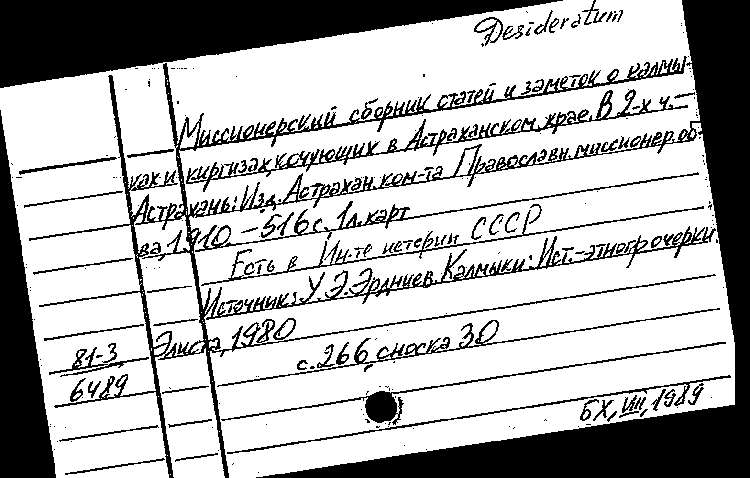 Desideratum
Миссионерский сборник статей и заметок о калмы-
ках и киргизах, кочующих в Астраханском крае. В 2-х ч. —
Астрахань: Изд. Астрахан. ком-та Православн. миссионер. об-
ва, 1910. – 516 с., 1 л. карт
Есть в Ин-те истории СССР
Источник: У.Э. Эрдниев. Калмыки: Ист.-этногр очерки.
Элиста, 1980
с. 266, сноска 30
81-3
6489
БХ, VIII, 1989